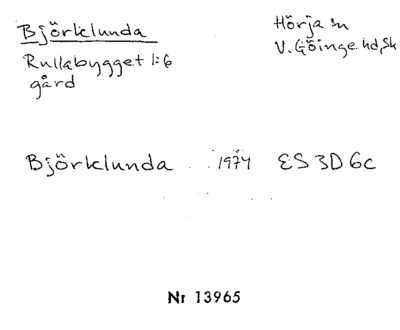 Björklunda
Hörja sn
Rullabygget 1:6
V. Göinge hd, Sk
gård
Björklunda 1974 ES 3D 6c
Nr 13965